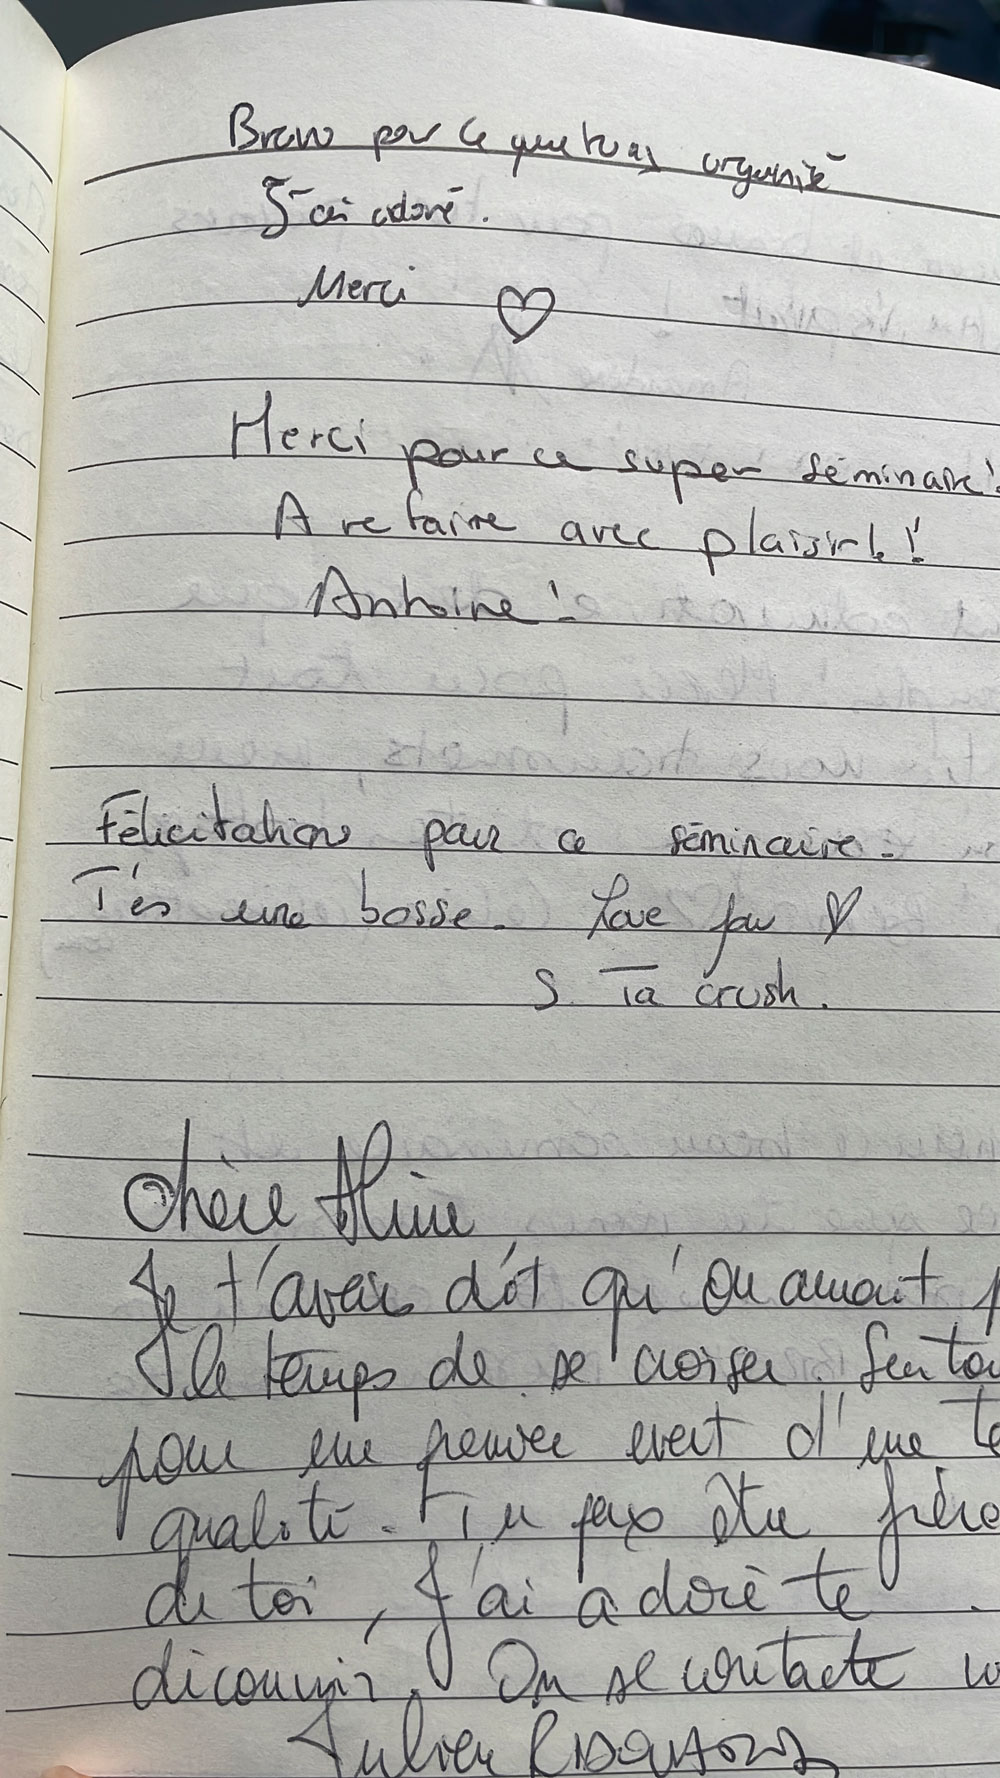 Bravo pour ce que tu as organisé
J'ai adoré.
Merci ♡
Merci pour ce super séminaire!
A refaire avec plaisir!!
Antoine!
Félicitations pour ce séminaire.
T'es une bosse. Love you ♡
S. Ta crush.
Chère Aline
Je t'avais dit qu'on aurait
le temps de se croiser.
pour une première event d'une
qualité. Tu peux être
de toi, J'ai adoré te
découvrir. On se contacte
Julien